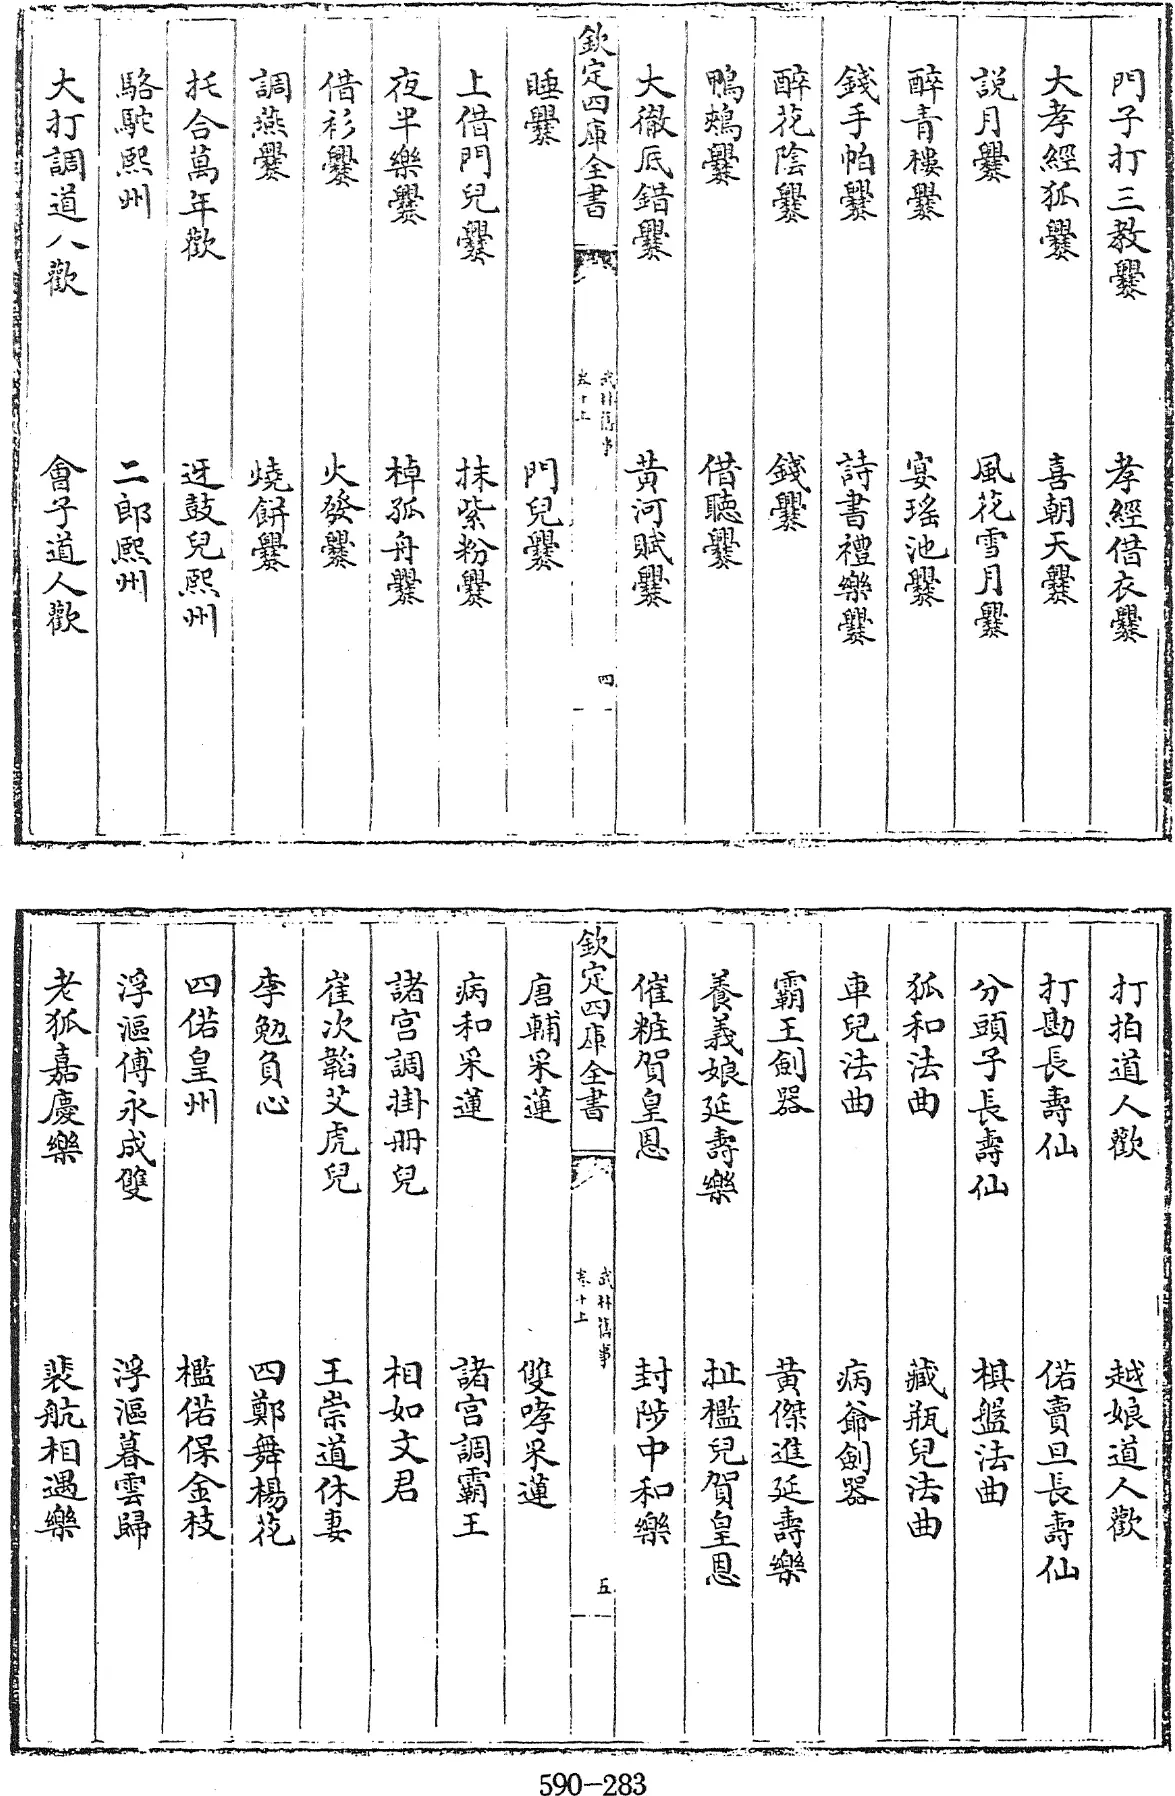 門子打三教爨　孝經借衣爨
大孝經狐爨　喜朝天爨
説月爨　風花雪月爨
醉青樓爨　宴瑤池爨
錢手帕爨　詩書禮樂爨
醉花陰爨　錢爨
鴨鵝爨　借聽爨
大徹底錯爨　黄河賦爨
欽定四庫全書　武林舊事　卷十上　四
睡爨　門兒爨
上借門兒爨　抹紫粉爨
夜半樂爨　棹孤舟爨
借衫爨　火發爨
調燕爨　燒餅爨
托合萬年歡　迓鼓兒熙州
駱駝熙州　二郎熙州
大打調道人歡　會子道人歡
打拍道人歡　越娘道人歡
打勘長壽仙　偌賣旦長壽仙
分頭子長壽仙　棋盤法曲
狐和法曲　藏瓶兒法曲
車兒法曲　病爺劍器
霸王劍器　黄傑進延壽樂
養義娘延壽樂　扯檻兒賀皇恩
催粧賀皇恩　封陟中和樂
欽定四庫全書　武林舊事　卷十上　五
唐輔采蓮　雙哮采蓮
病和采蓮　諸宮調霸王
諸宮調掛冊兒　相如文君
崔次韜艾虎兒　王崇道休妻
李勉負心　四鄭舞楊花
四偌皇州　檻偌保金枝
浮漚傳永成雙　浮漚暮雲歸
老狐嘉慶樂　裴航相遇樂
590-283